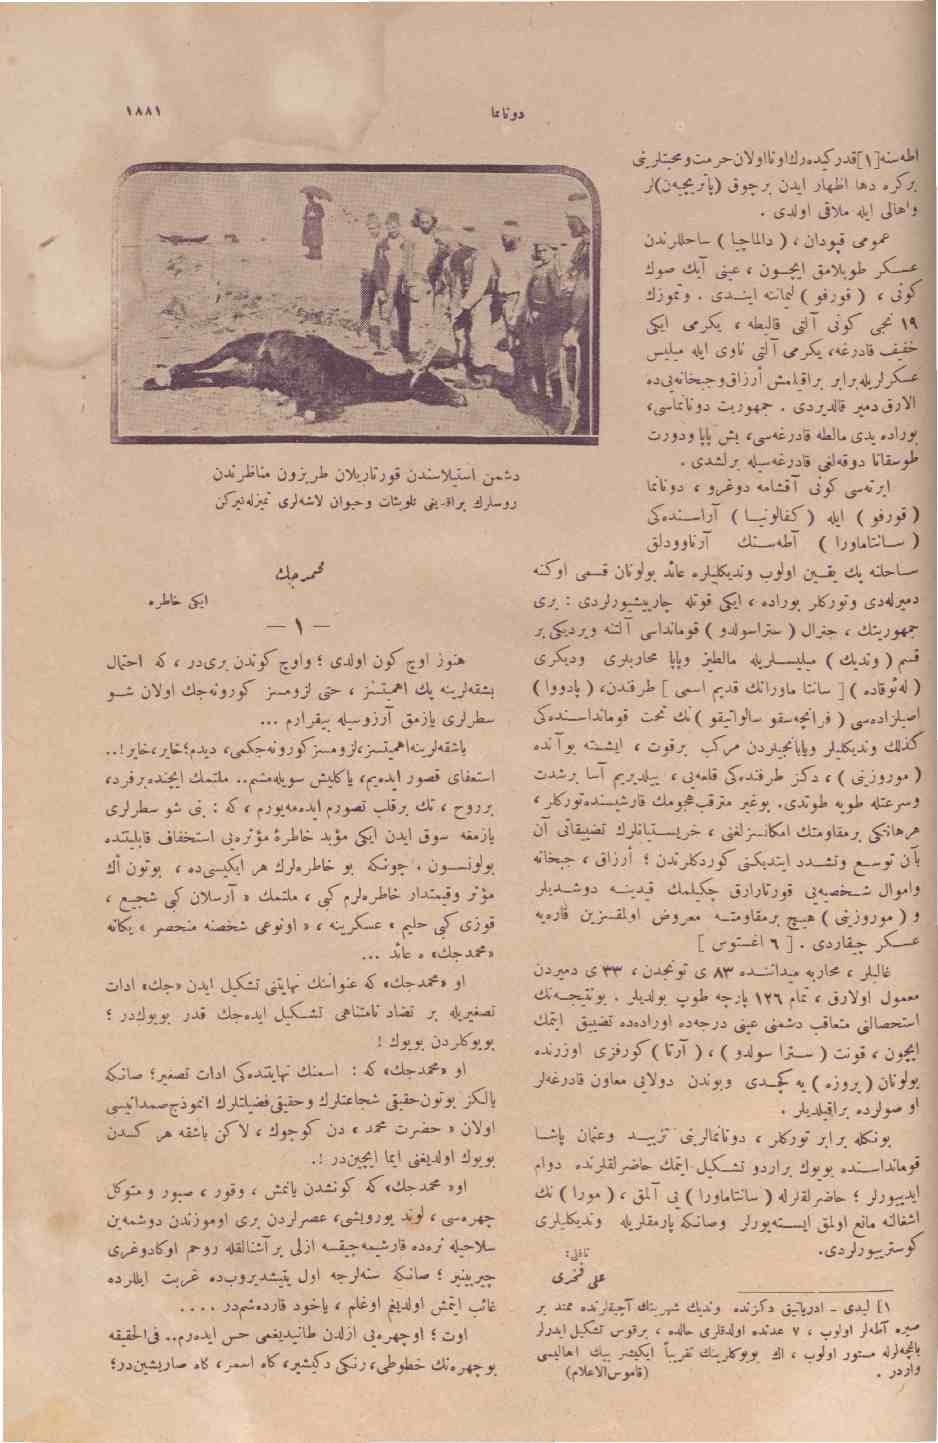 دوناتما
١٨٨١
اطه‌سنه [١] قدر كيده‌رك اونا اولان حرمت و محبتلرينی
بركره دها اظهار ايدن برچوق (پاتريچيه‌ن) لر
واهالی ايله ملاقی اولدی .
عمومی قپودان ، ( دالماچيا ) ساحللرندن
عسكر طوپلامق ايچون ، عينی آيك صوك
كونی ، ( قورفو ) ليماننه ايندی . وتموزك
١٩ نجی كونی آلتی قاليطه ، يكرمی ايكی
خفيف قادرغه، يكرمی آلتی ناوی ايله ميليس
عسكرلريله برابر براقيلمش أرزاق وجبخانه‌يی ده
آلارق دمير قالديردی . جمهوريت دونانماسی،
بوراده يدی مالطه قادرغه‌سی، بش پاپا ودورت
طوسقانا دوقه‌لغی قادرغه‌سيله برلشدی .
ايرته‌سی كونی آقشامه دوغرو ، دونانما
( قورفو ) ايله ( كفالونيا ) آراسنده‌كی
( سانتاماورا ) آطه‌سنك آرناوودلق
ساحلنه پك يقين اولوب ونديكليلره عائد بولونان قسمی اوكنه
دميرله‌دی وتوركلر بوراده ، ايكی قوتله چارپيشيورلردی : بری
جمهوريتك ، جنرال ( ستراسولدو ) قومانداسی آلتنه ويرديكی بر
قسم ( ونديك ) ميليسلريله مالطيز وپاپا محاربلری وديكری
( له‌ئوقاده ) [ سانتا ماورانك قديم اسمی ] طرفندن، ( پادووا )
اصيلزاده‌سی ( فرانچه‌سقو سالواتيقو ) نك تحت قومانداسنده‌كی
كذلك ونديكليلر وپاپانجيلردن مركب برقوت ، ايشته بو آنده
( موروزينی ) ، دكز طرفنده‌كی قلعه‌يی ، ييلديريم آسا برشدت
وسرعتله طوپه طوتدی. بوغير مترقب هجومك قارشيسنده توركلر ،
هرهانكی برمقاومتك امكانسزلغنی ، خريستيانلرك تضييقاتی آن
بآن توسع وتشدد ايتديكنی كوردكلرندن ؛ أرزاق ، جبخانه
واموال شخصيه‌يی قورتارارق چكيلمك قيدينه دوشديلر
و ( موروزينی ) هيچ برمقاومته معروض اولمقسزين قاره‌يه
عسكر چيقاردی . [ ٦ اغستوس ]
غالبلر ، محاربه ميداننده ٨٣ ی تونجدن ، ٣٣ ی دميردن
معمول اولارق ، تمام ١٢٦ پارچه طوپ بولديلر . بونتيجه‌نك
استحصالنی متعاقب دشمنی عينی درجه‌ده اوراده‌ده تضييق ايتمك
ايچون ، قونت ( سترا سولدو ) ، ( آرتا ) كورفزی اوزرنده
بولونان ( پروزه ) يه كچدی وبوندن دولايی معاون قادرغه‌لر
او صولرده براقيلديلر .
بونكله برابر توركلر ، دونانمالرينی تزييد وعثمان پاشا
قومانداسنده بويوك براردو تشكيل ايتمك حاضرلقلرنده دوام
ايديبورلر ؛ حاضرلقلرله ( سانتاماورا ) يی آلمق ، ( مورا ) نك
اشغالنه مانع اولمق ايسته‌يورلر وصانكه پارمقلريله ونديكليلری
كوستريبورلردی.
ناقلی:
علی فخری
[١ ليدی - ادرياتيق دكزنده ونديك شهرينك آچيقلرنده ممتد بر
صيره آطه‌لر اولوب ، ٧ عددنده اولدقلری حالده ، برقوس تشكيل ايدرلر
باغچه‌لرله مستور اولوب ، اك بويوكلرينك تقريباً ايكيشر بيك اهاليسی
واردر . (قاموس‌الاعلام)
دشمن استيلاسندن قورتاريلان طربزون مناظرندن
روسلرك براقديغی تلويثات وحيوان لاشه‌لری تميزله‌نيركن
محمدجك
ايكی خاطره
— ١ —
هنوز اوچ كون اولدی ؛ واوچ كوندن بری‌در ، كه احتمال
بشقه‌لرينه پك اهميتسز ، حتی لزومسز كورونه‌جك اولان شو
سطرلری يازمق آرزوسيله بيقرارم ...
باشقه‌لرينه اهميتسز، لزومسز كورونه‌جكمی، ديدم؛ خاير، خاير!..
استعفای قصور ايده‌يم، ياكليش سويله‌مشم.. ملتمك ايچنده برفرد،
برروح ، تك برقلب تصورم ايده‌مه‌يورم ، كه : بنی شو سطرلری
يازمغه سوق ايدن ايكی مؤبد خاطرهٔ مؤثره‌يی استخفاف قابليتنده
بولونسون . چونكه بو خاطره‌لرك هر ايكيسی‌ده ، بوتون أك
مؤثر وقيمتدار خاطره‌لرم كبی ، ملتمك « آرسلان كبی شجيع ،
قوزی كبی حليم » عسكرينه ، « اونوعی شخصنه منحصر » يكانه
«محمدجك» ه عائد ...
او «محمدجك» كه عنوانك نهايتنی تشكيل ايدن «جك» ادات
تصغيريله بر تضاد نامتناهی تشكيل ايده‌جك قدر بويوكدر ؛
بويوكلردن بويوك !
او «محمدجك» كه : اسمنك نهايتنده‌كی ادات تصغير؛ صانكه
يالكز بوتون حقيقی شجاعتلرك وحقيقی فضيلتلرك انموذج صمدانيسی
اولان « حضرت محمد » دن كوچوك ، لاكن باشقه هر كسدن
بويوك اولديغنی ايما ايچين‌در !.
او« محمدجك» كه كونشدن يانمش ، وقور ، صبور و متوكل
چهره‌سی ، لوند يورويشی، عصرلردن بری اوموزندن دوشمه‌ين
سلاحيله نره‌ده قارشيمه چيقسه ازلی بر آشنالقله روحم اوكا دوغری
چيرپينير ؛ صانكه سنه‌لرجه اول يتيشديروب‌ده غربت ايللرده
غائب ايتمش اولديغم اوغلم ، ياخود قارده‌شمدر ....
اوت ؛ اوچهره‌يی ازلدن طانيديغمی حس ايده‌رم.. فی‌الحقيقه
بوچهره‌نك خطوطی، رنكی دكيشير، كاه اسمر، كاه صاريشين‌در؛